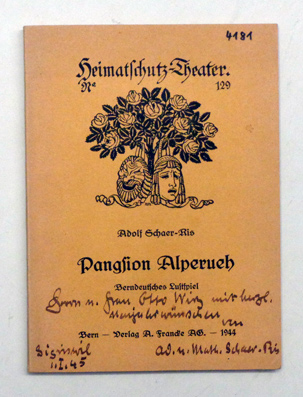 4181
Heimatschutz-Theater.
No 129
Adolf Schaer-Ris
Pangsion Alperueh
Berndeutsches Lustspiel
Herrn u. Frau Otto Wirz mit herzl.
Neujahrswünschen
von
Bern — Verlag A. Francke AG. — 1944
Sigriswil ad. u. Math. Schaer-Ris
1.I.45